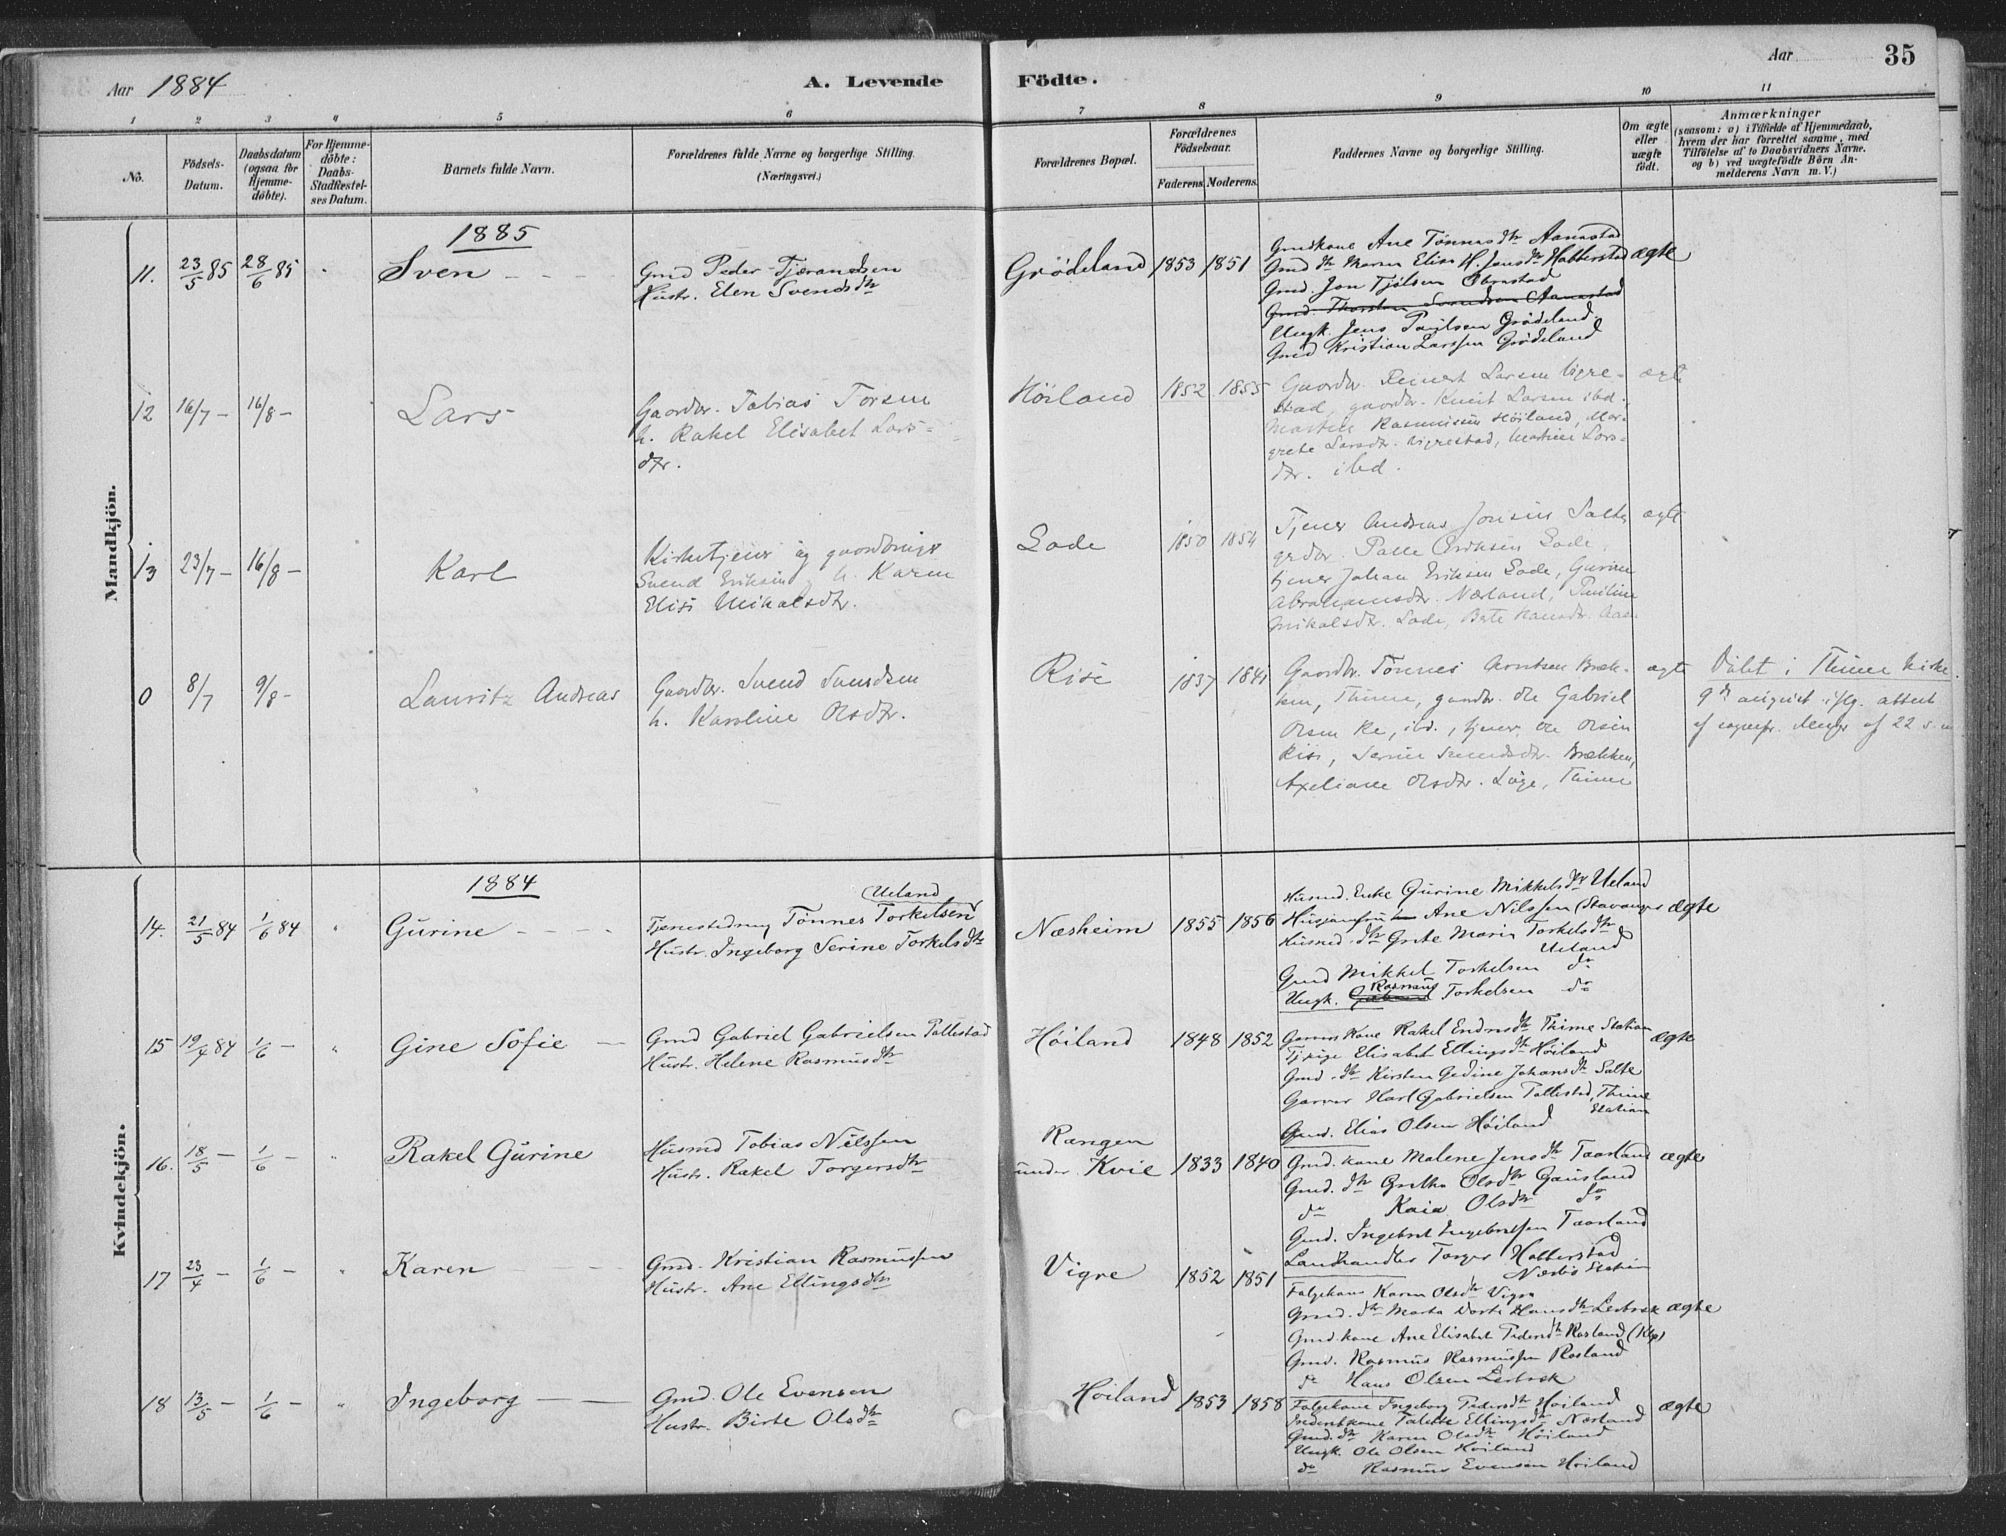 Aar 1884
A. Levende Födte.
Aar
35
1 2 3 4 5 6 7 8 9 10 11
No.
Födsels-Datum.
Daabsdatum (ogsaa for Hjemme-döbte).
For Hjemme-döbte: Daabs-Stadfæstel-ses Datum.
Barnets fulde Navn.
Forældrenes fulde Navne og borgerlige Stilling. (Næringsvei.)
Forældrenes Bopæl.
Forældrenes Födselsaar.
Faderens. Moderens.
Faddernes Navne og borgerlige Stilling.
Om ægte eller uægte födt.
Anmærkninger
(saasom: a) i Tilfælde af Hjemmedaab,
hvem der har forrettet samme, med
Tilföielse af to Daabsvidners Navne.
og b) ved uægtefödte Börn An-
melderens Navn m. V.)
Mandkjön.
1885
11. 23/5 85 28/6 85 Sven
Gmd Peder Tjærandsen
Hustr. Elen Svendsdtr
Grödeland 1853 1851
Gmdkone Ane Tönnesdtr Aanestad
Gmd dtr Maren Elise H. Jensdtr Hatterstad ægte
Gmd. Jon Tjölsen Obrestad
Gmd. Thorsten Svendsen Aanestad
Ungk. Jens Poulsen Grödeland
Gmd Kristian Larssen Grödeland
12 16/7 - 16/8 - Lars
Gaardbr. Tobias Torsen
h. Rakel Elisabet Lars-
dtr.
Höiland 1852 1855
Gaardbr. Reinert Larsen Vigre- ægte
stad, gaardbr. Knut Larsen ibd.
Martin Rasmussen Höiland, Mar-
grete Larsdtr. Vigrestad, Martine Lars-
dtr. ibd.
13 23/7 - 16/8 - Karl
Kirketjener og gaardbruger
Svend Eriksen, h. Karen
Elise Mikalsdtr.
Lode 1850 1854
Tjener Andreas Jonsen Salte, ægte
grdbr. Palle Eriksen Lode,
tjener Johan Eriksen Lode, Gurine
Abrahamsdtr. Nærland, Pauline
Mikalsdtr. Lode, Berte Hansdtr.
0 8/7 9/8 - Lauritz Andreas
Gaardbr. Svend Svendsen
h. Karoline Olsdtr.
Rise 1837 1841
Gaardbr. Tönnes Arntsen Bræk- ægte
ken, Thime, gaardbr. Ole Gabriel
Olsen Re, ibd., tjener Ole Olsen
Rise, Serine Svendsdtr. Brækken,
Axeliane Olsdtr. Lye, Thime
Döbt i Thime kirke
9de august iflg. attest
af sognepr. af 22 s. m.
Kvindekjön.
1884
14. 21/5 84 1/6 84 " Gurine
Ueland
Tjenestedreng Tönnes Torkelsen
Hustr. Ingeborg Serine Torkelsdtr
Næsheim 1855 1856
Husmd. Enke Gurine Mikkelsdtr Ueland
Husjomfru Ane Nilssen (Stavanger ægte
Husmd. dtr Grete Marie Torkelsdtr
Ueland
Gmd Mikkel Torkelsen do
Ungk. Rasmus Torkelsen do
15 19/4 84 1/6 - " Gine Sofie
Gmd Gabriel Gabrielsen Tallestad
Hustr. Helene Rasmusdtr
Höiland 1848 1852
Garver Kone Rakel Endresdtr Thime Station ægte
Tj. pige Elisabet Ellingsdtr Höiland
Gmd. dtr Kirsten Gedine Johansdtr Salte
Garver Karl Gabrielsen Tallestad, Thime
Station
Gmd. Elias Olsen Höiland
16. 18/5 - 1/6 - " Rakel Gurine
Husmd Tobias Nilssen
Hustr. Rakel Torgersdtr
Rængen
under Kvie 1833 1840
Gmd. kone Malene Jensdtr Taarland ægte
Gmd. dtr Grethe Olsdtr Gausland
do Kaia Olsdtr do
Gmd. Ingebret Ingebretsen Taarland
Landhandler Torger Hatterstad
Nærbö Station
17 23/4 - 1/6 - " Karen
Gmd. Kristian Rasmussen
Hustr. Ane Ellingsdtr
Vigre 1852 1851
Folgekone Karen Olsdtr Vigre
Gmd. dtr Marta Dorte Hansdtr Lerbrek ægte
Gmd. kone Ane Elisabet Pedersdtr Rosland (Klep)
Gmd. Rasmus Rasmussen Rosland
do Hans Olsen Lerbrek
18 13/5 - 1/6 - " Ingeborg
Gmd. Ole Evensen
Hustr. Birte Olsdtr
Höiland 1853 1858
Folgekone Ingeborg Pedersdtr Höiland ægte
Talette Ellingsdtr Nærland
Gmd. dtr Karen Olsdtr Höiland
Ungk. Ole Olsen Höiland
do Rasmus Evensen Höiland